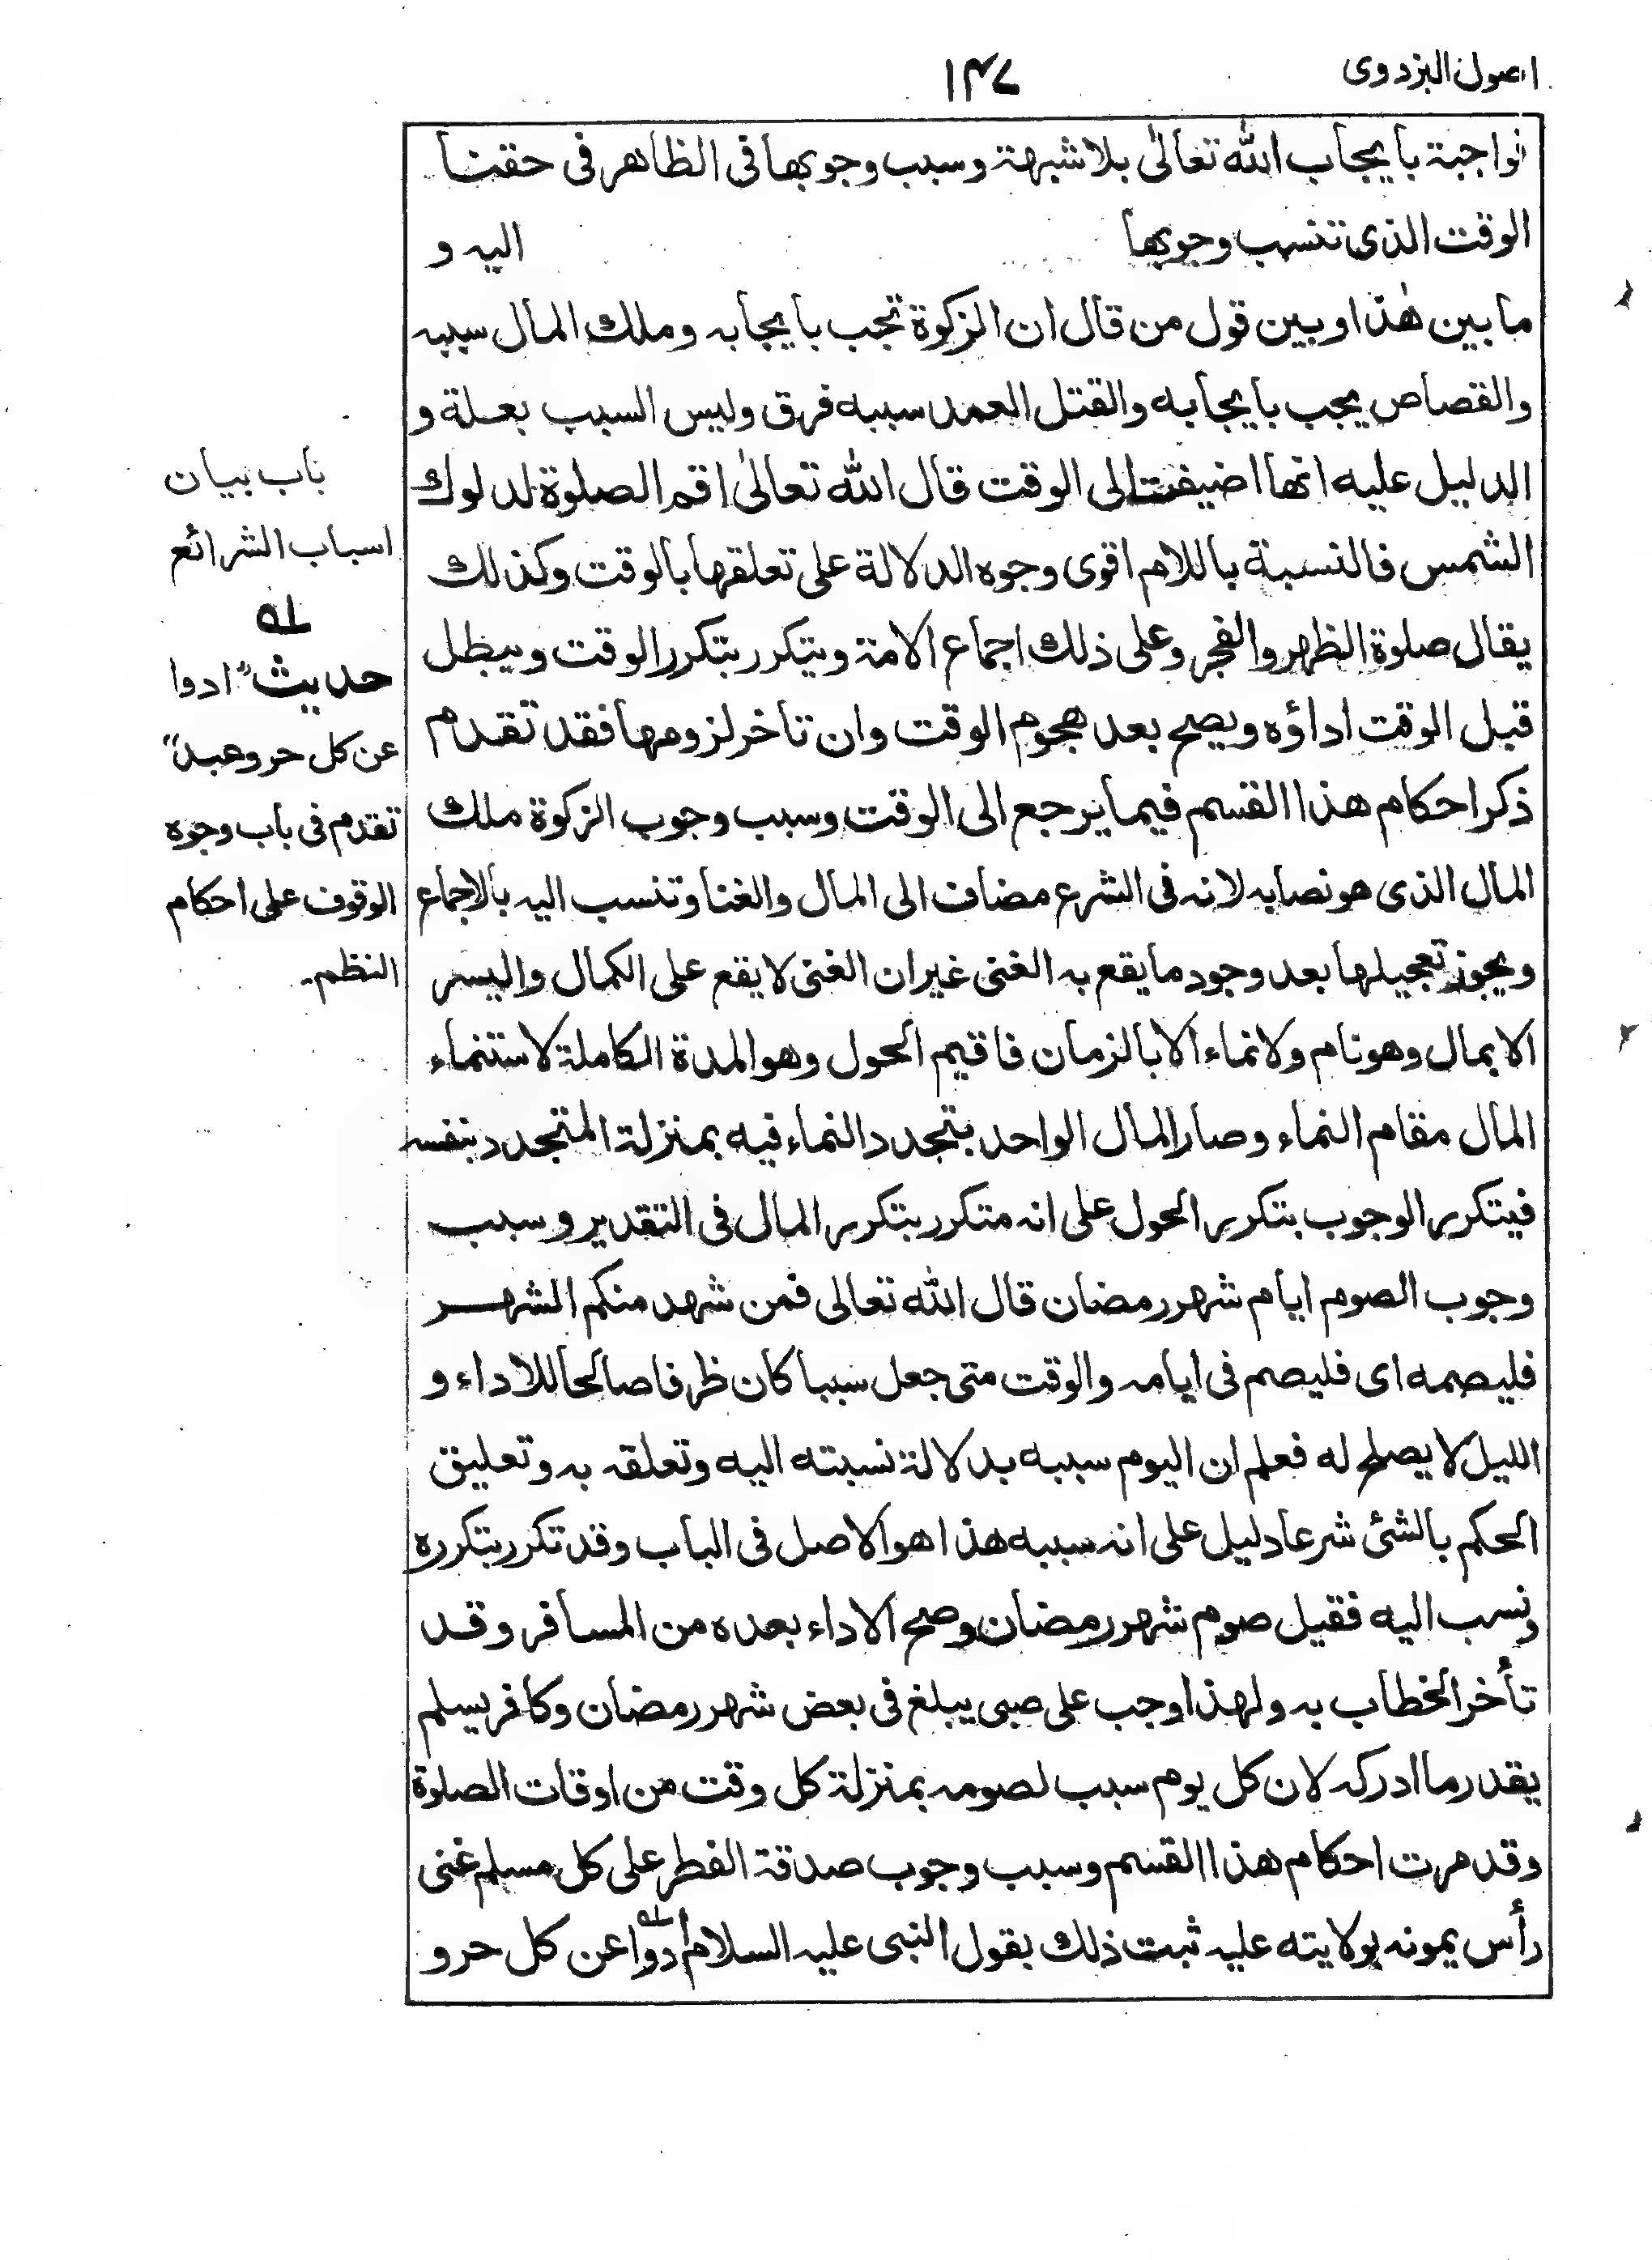 اصول البزدوی
۱۴۷
واجبة بايجاب الله تعالیٰ بلا شبهة وسبب وجوبها فی الظاهر فی حقنا
الوقت الذی تنسب وجوبها اليه و
ما بين هٰذا وبين قول من قال ان الزكوة تجب بايجابه وملك المال سببه
والقصاص يجب بايجابه والقتل العمد سببه فرق وليس السبب بعلة و
الدليل عليه انها اضيفت الی الوقت قال الله تعالیٰ اقم الصلوة لدلوك
الشمس فالنسبة باللام اقوی وجوه الدلالة علی تعلقها بالوقت وكذلك
يقال صلوة الظهر والفجر وعلی ذلك اجماع الامة ويتكرر بتكرر الوقت ويبطل
قبل الوقت اداؤه ويصح بعد هجوم الوقت وان تاخر لزومها فقد تقدم
ذكر احكام هذا القسم فيما يرجع الی الوقت وسبب وجوب الزكوة ملك
المال الذی هو نصابه لانه فی الشرع مضاف الی المال والغنا وتنسب اليه بالاجماع
ويجوز تعجيلها بعد وجود ما يقع به الغنی غير ان الغنی لا يقع علی الكمال واليسر
الا بمال وهو نام ولا نماء الا بالزمان فاقيم الحول وهو المدة الكاملة لاستنماء
المال مقام النماء وصار المال الواحد بتجدد النماء فيه بمنزلة المتجدد بنفسه
فيتكرر الوجوب بتكرر الحول علی انه متكرر بتكرر المال فی التقدير وسبب
وجوب الصوم ايام شهر رمضان قال الله تعالی فمن شهد منكم الشهر
فليصمه ای فليصم فی ايامه والوقت متی جعل سببا كان ظرفا صالحا للاداء و
الليل لا يصلح له فعلم ان اليوم سببه بدلالة نسبته اليه وتعلقه به وتعليق
الحكم بالشئ شرعا دليل علی انه سببه هذا هو الاصل فی الباب وقد تكرر بتكرره
ونسب اليه فقيل صوم شهر رمضان وصح الاداء بعده من المسافر وقد
تأخر الخطاب به ولهذا وجب علی صبی يبلغ فی بعض شهر رمضان وكافر يسلم
يقدر ما ادركه لان كل يوم سبب لصومه بمنزلة كل وقت من اوقات الصلوة
وقد مرت احكام هذا القسم وسبب وجوب صدقة الفطر علی كل مسلم غنی
رأس يمونه بولايته عليه ثبت ذلك بقول النبی عليه السلام ادوا عن كل حر و
باب بيان
اسباب الشرائع
لہ
حديث "ادوا
عن كل حر وعبد"
تقدم فی باب وجوه
الوقوف علی احكام
النظم۔